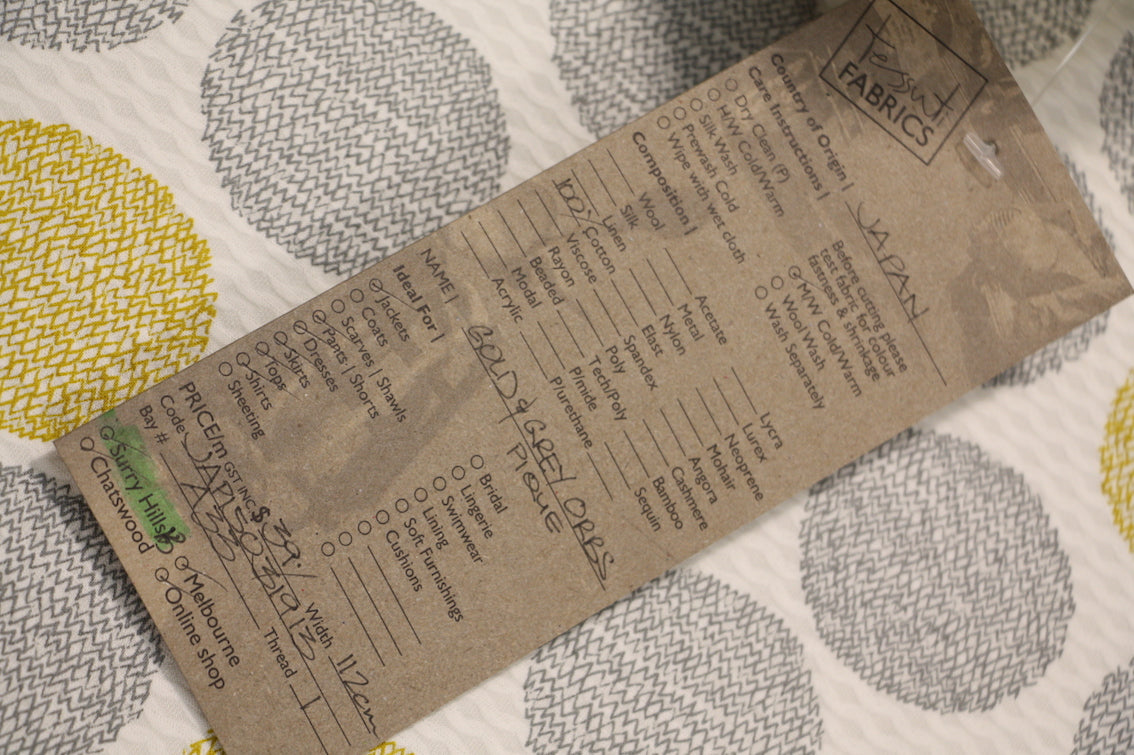 Tessuti
FABRICS
Country of Origin | JAPAN
Care Instructions |
Dry Clean (P)
H/W Cold/Warm
Silk Wash
Prewash Cold
Wipe with wet cloth
Before cutting please
test fabric for colour
fastness & shrinkage
M/W Cold/Warm
Wool Wash
Wash Separately
Composition |
Wool
Silk
Linen
100% Cotton
Viscose
Rayon
Beaded
Modal
Acrylic
Acetate
Metal
Nylon
Elast
Spandex
Poly
Tech/Poly
P/mide
P/urethane
Lycra
Lurex
Neoprene
Mohair
Angora
Cashmere
Bamboo
Sequin
NAME | GOLD & GREY ORBS
PIQUE
Ideal For |
Jackets
Coats
Scarves | Shawls
Pants | Shorts
Dresses
Skirts
Tops
Shirts
Sheeting
Bridal
Lingerie
Swimwear
Lining
Soft Furnishings
Cushions
PRICE/m GST INC. $ 39. Width 112cm
Code
Bay # Thread
Surry Hills
Chatswood
Melbourne
Online shop